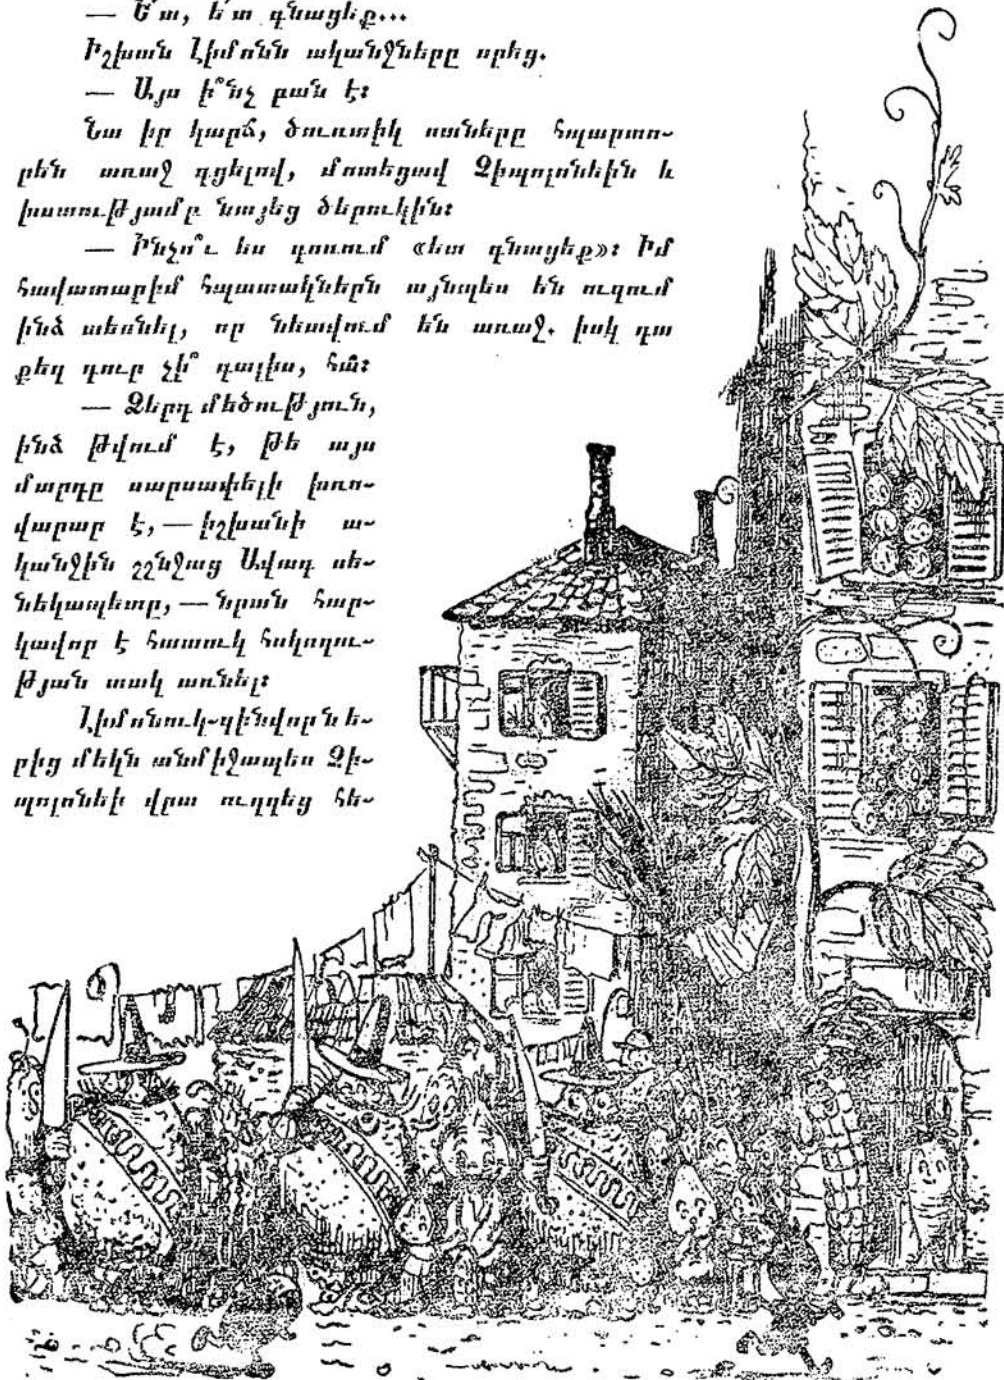 — Ե՛տ, ե՛տ գնացեք...
Իշխան Լիմոնն ականջները սրեց.
— Այս ի՞նչ բան է։
Նա իր կարճ, ծուռտիկ ոտները հպարտո-
րեն առաջ գցելով, մոտեցավ Չիպոլոնեին և
խստությամբ նայեց ծերուկին։
— Ինչո՞ւ ես գոռում «ետ գնացեք»։ Իմ
հավատարիմ հպատակներն այնպես են ուզում
ինձ տեսնել, որ նետվում են առաջ. իսկ դա
քեզ դուր չի՞ գալիս, հա՞։
— Ձերդ մեծություն,
ինձ թվում է, թե այս
մարդը սարսափելի խռո-
վարար է, — իշխանի ա-
կանջին շշնջաց Ավագ սե-
նեկապետը, — նրան հար-
կավոր է հատուկ հսկողու-
թյան տակ առնել։
Լիմոնուկ-զինվորնե-
րից մեկն անմիջապես Չի-
պոլոնեի վրա ուղղեց հե-